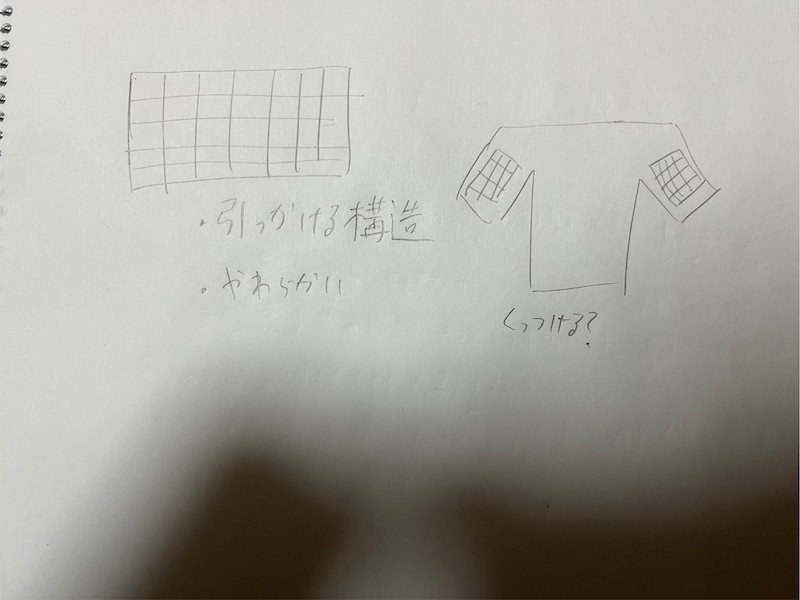 ・引っかける構造
・やわらかい
くっつける?